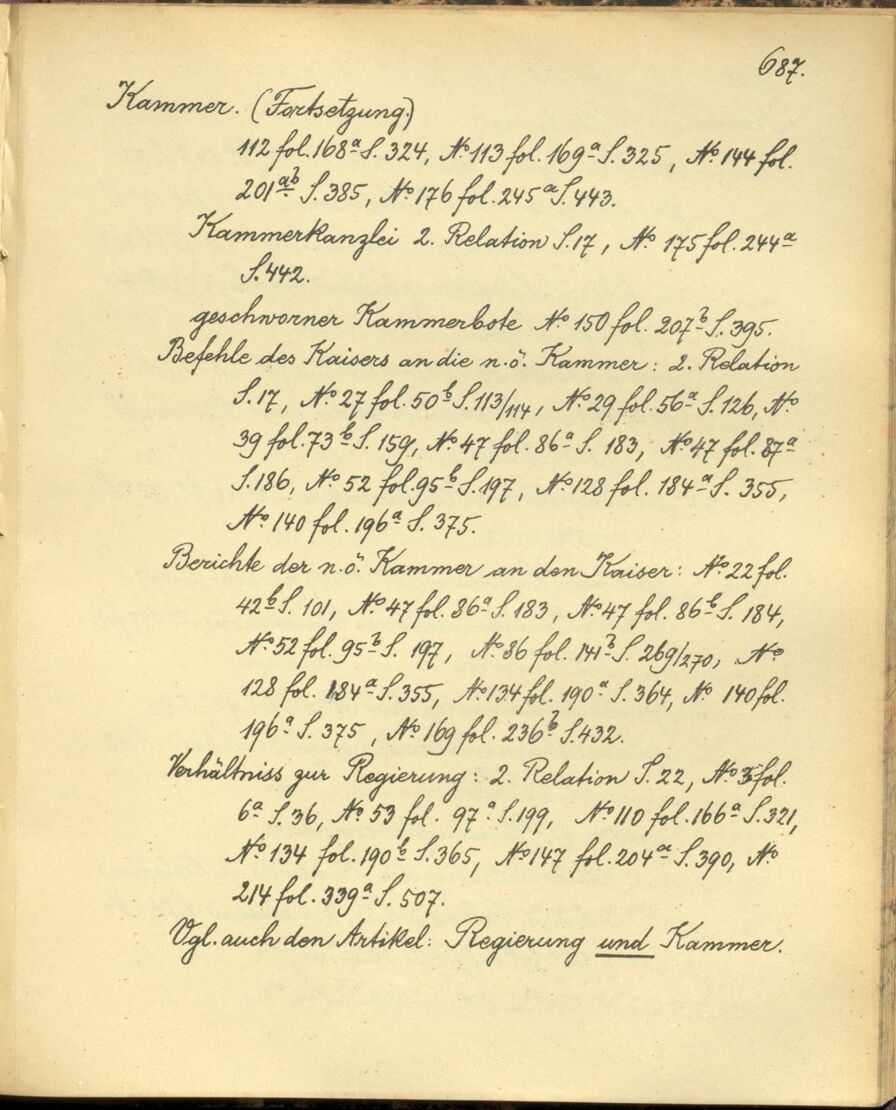 687.
Kammer. (Fortsetzung.)
112 fol. 168ª S. 324, Nº 113 fol. 169ª S. 325, Nº 144 fol.
201ªᵇ S. 385, Nº 176 fol. 245ª S. 443.
Kammerkanzlei 2. Relation S. 17, Nº 175 fol. 244ª
S. 442.
geschworner Kammerbote Nº 150 fol. 207ᵇ S. 395.
Befehle des Kaisers an die n.ö. Kammer: 2. Relation
S. 17, Nº 27 fol. 50ᵇ S. 113/114, Nº 29 fol. 56ª S. 126, Nº
39 fol. 73ᵇ S. 159, Nº 47 fol. 86ª S. 183, Nº 47 fol. 87ª
S. 186, Nº 52 fol. 95ᵇ S. 197, Nº 128 fol. 184ª S. 355,
Nº 140 fol. 196ª S. 375.
Berichte der n.ö. Kammer an den Kaiser: Nº 22 fol.
42ᵇ S. 101, Nº 47 fol. 86ª S. 183, Nº 47 fol. 86ᵇ S. 184,
Nº 52 fol. 95ᵇ S. 197, Nº 86 fol. 141ᵇ S. 269/270, Nº
128 fol. 184ª S. 355, Nº 134 fol. 190ª S. 364, Nº 140 fol.
196ª S. 375, Nº 169 fol. 236ᵇ S. 432.
Verhältniss zur Regierung: 2. Relation S. 22, Nº 3 fol.
6ª S. 36, Nº 53 fol. 97ª S. 199, Nº 110 fol. 166ª S. 321,
Nº 134 fol. 190ᵇ S. 365, Nº 147 fol. 204ª S. 390, Nº
214 fol. 339ª S. 507.
Vgl. auch den Artikel: Regierung und Kammer.